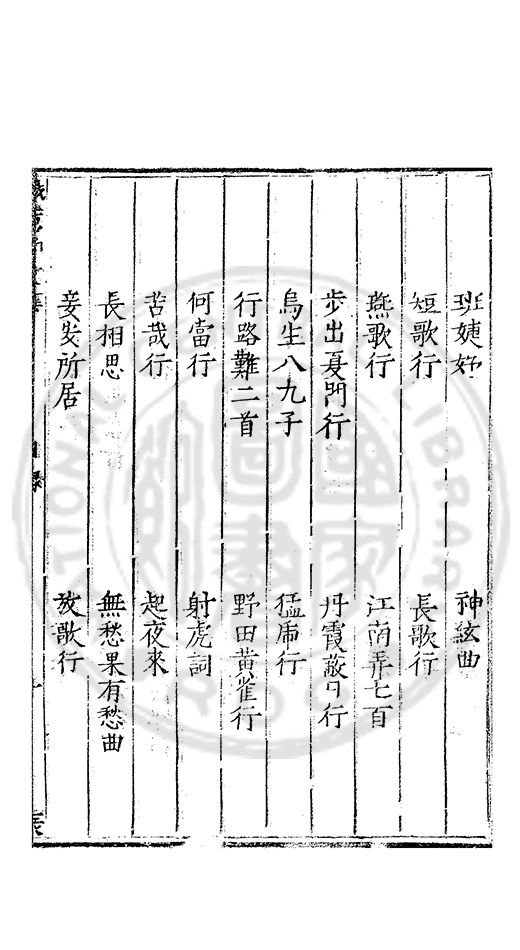 班婕妤 神絃曲
短歌行 長歌行
燕歌行 江南弄七首
步出夏門行 丹霞蔽日行
烏生八九子 猛虎行
行路難二首 野田黃雀行
何當行 射虎詞
苦哉行 起夜來
長相思 無愁果有愁曲
妾安所居 放歌行
目錄